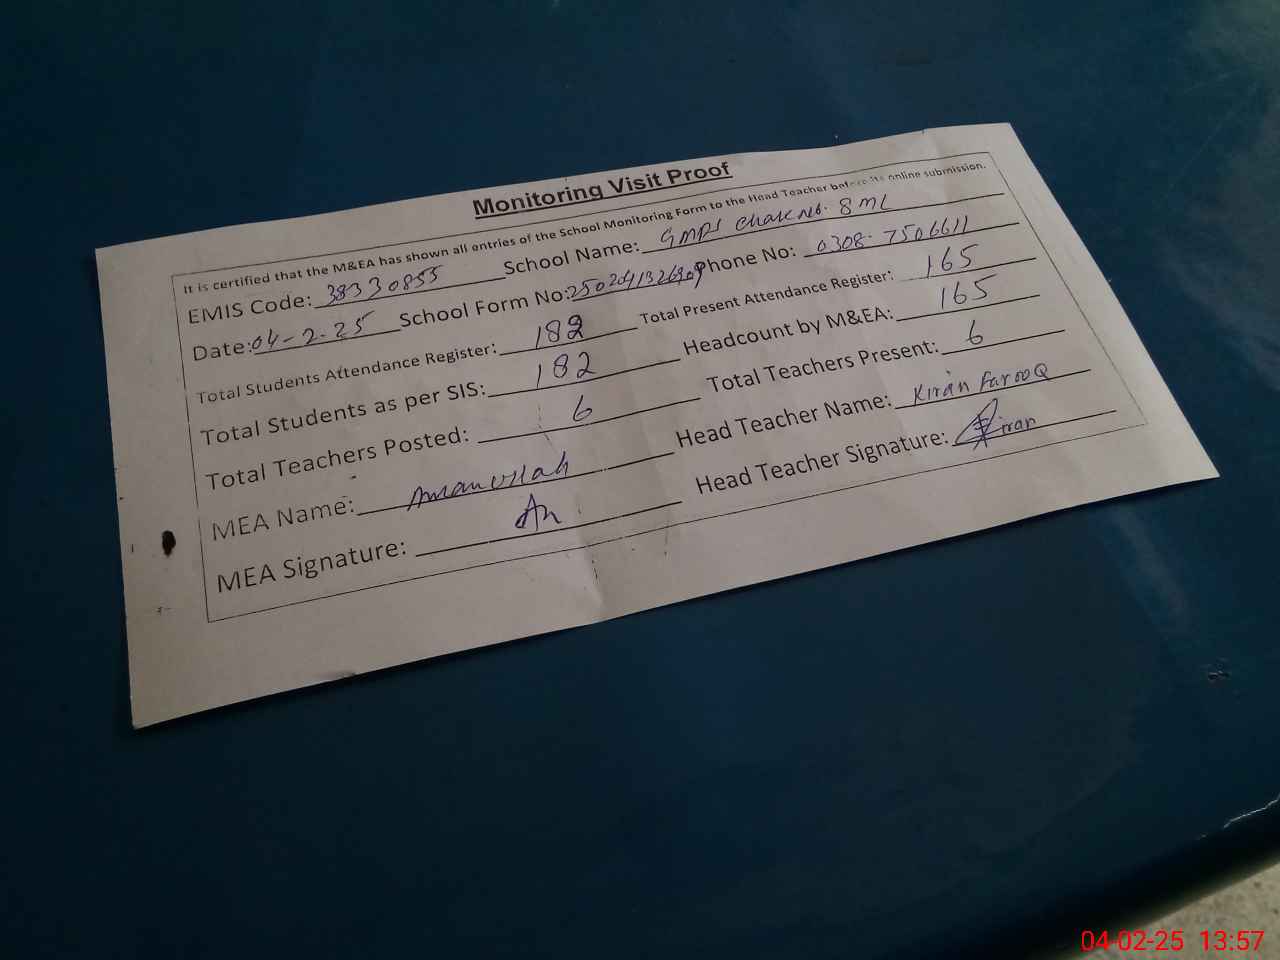 Monitoring Visit Proof
It is certified that the M&EA has shown all entries of the School Monitoring Form to the Head Teacher before its online submission.
EMIS Code: 38330855 School Name: GMPS Chak No. 8 ML
Date: 04-2-25 School Form No: Phone No: 0308-7506611
Total Students Attendance Register: 182 Total Present Attendance Register: 165
Total Students as per SIS: 182 Headcount by M&EA: 165
Total Teachers Posted: 6 Total Teachers Present: 6
MEA Name: Amanullah Head Teacher Name: Kiran Farooq
MEA Signature: Head Teacher Signature: Kiran
04-02-25 13:57